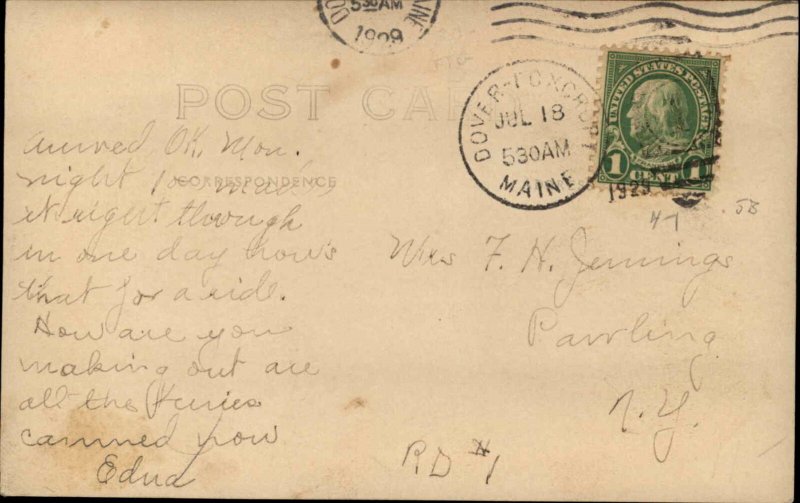 530AM
MAINE
1929
POST CARD
DOVER-FOXCROFT
JUL 18
530AM
MAINE
1929
UNITED STATES POSTAGE
1 CENT 1
CORRESPONDENCE
arrived OK. Mon.
night
it right through
in one day how's
that for a ride.
How are you
making out are
all the
canned now
Edna
47
58
Mrs F. H. Jennings
Pawling
N.Y.
RD #1